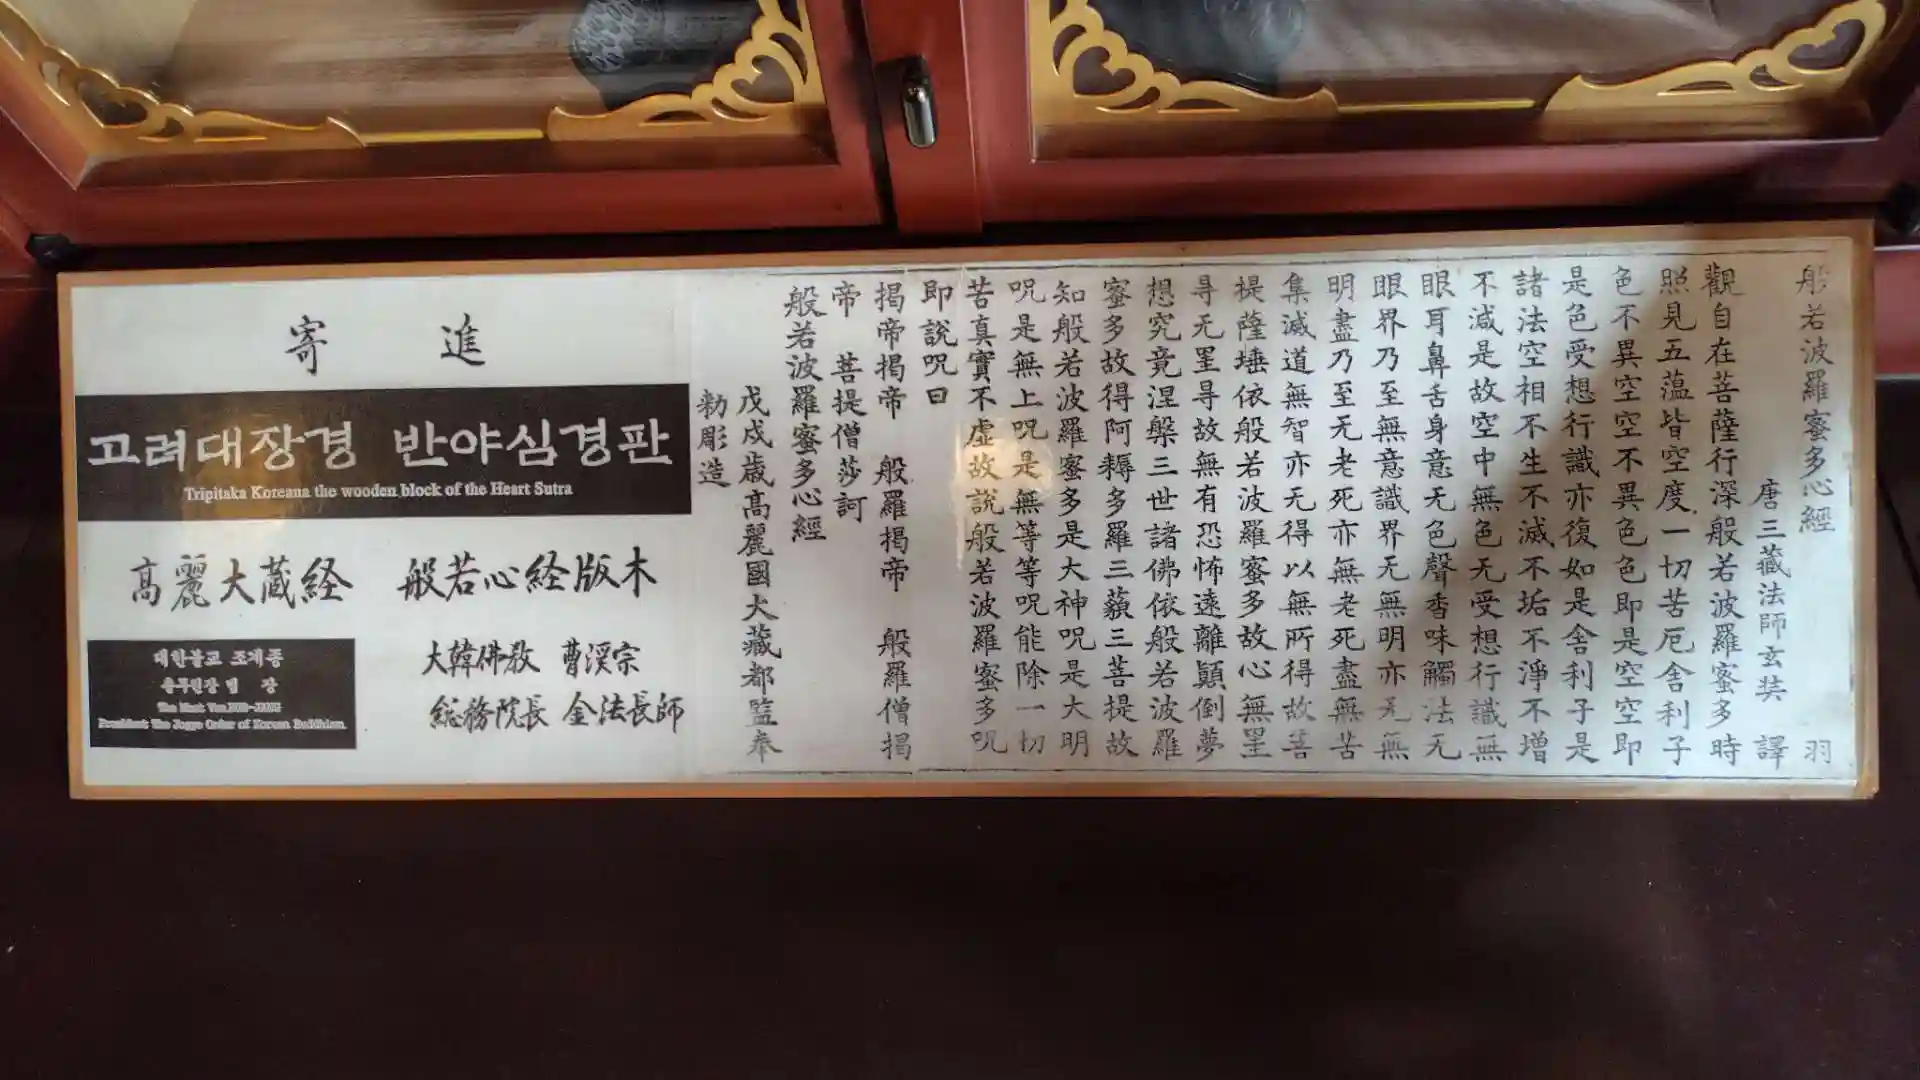 寄 進
고려대장경 반야심경판
Tripitaka Koreana the wooden block of the Heart Sutra
高麗大蔵経 般若心経版木
大韓佛教 曹溪宗
総務院長 金法長師
대한불교 조계종
총무원장 법 장
President The Jogye Order of Korean Buddhism.
般若波羅蜜多心經 羽
唐三藏法師玄奘 譯
觀自在菩薩行深般若波羅蜜多時
照見五蘊皆空度一切苦厄舍利子
色不異空空不異色色即是空空即
是色受想行識亦復如是舍利子是
諸法空相不生不滅不垢不淨不增
不減是故空中無色无受想行識無
眼耳鼻舌身意无色聲香味觸法无
眼界乃至無意識界无無明亦无無
明盡乃至无老死亦無老死盡無苦
集滅道無智亦无得以無所得故菩
提薩埵依般若波羅蜜多故心無罣
㝵无罣㝵故無有恐怖遠離顚倒夢
想究竟涅槃三世諸佛依般若波羅
蜜多故得阿耨多羅三藐三菩提故
知般若波羅蜜多是大神呪是大明
呪是無上呪是無等等呪能除一切
苦真實不虛故說般若波羅蜜多呪
即說呪曰
揭帝揭帝 般羅揭帝 般羅僧揭
帝 菩提僧莎訶
般若波羅蜜多心經
戊戌歲高麗國大藏都監奉
勑彫造